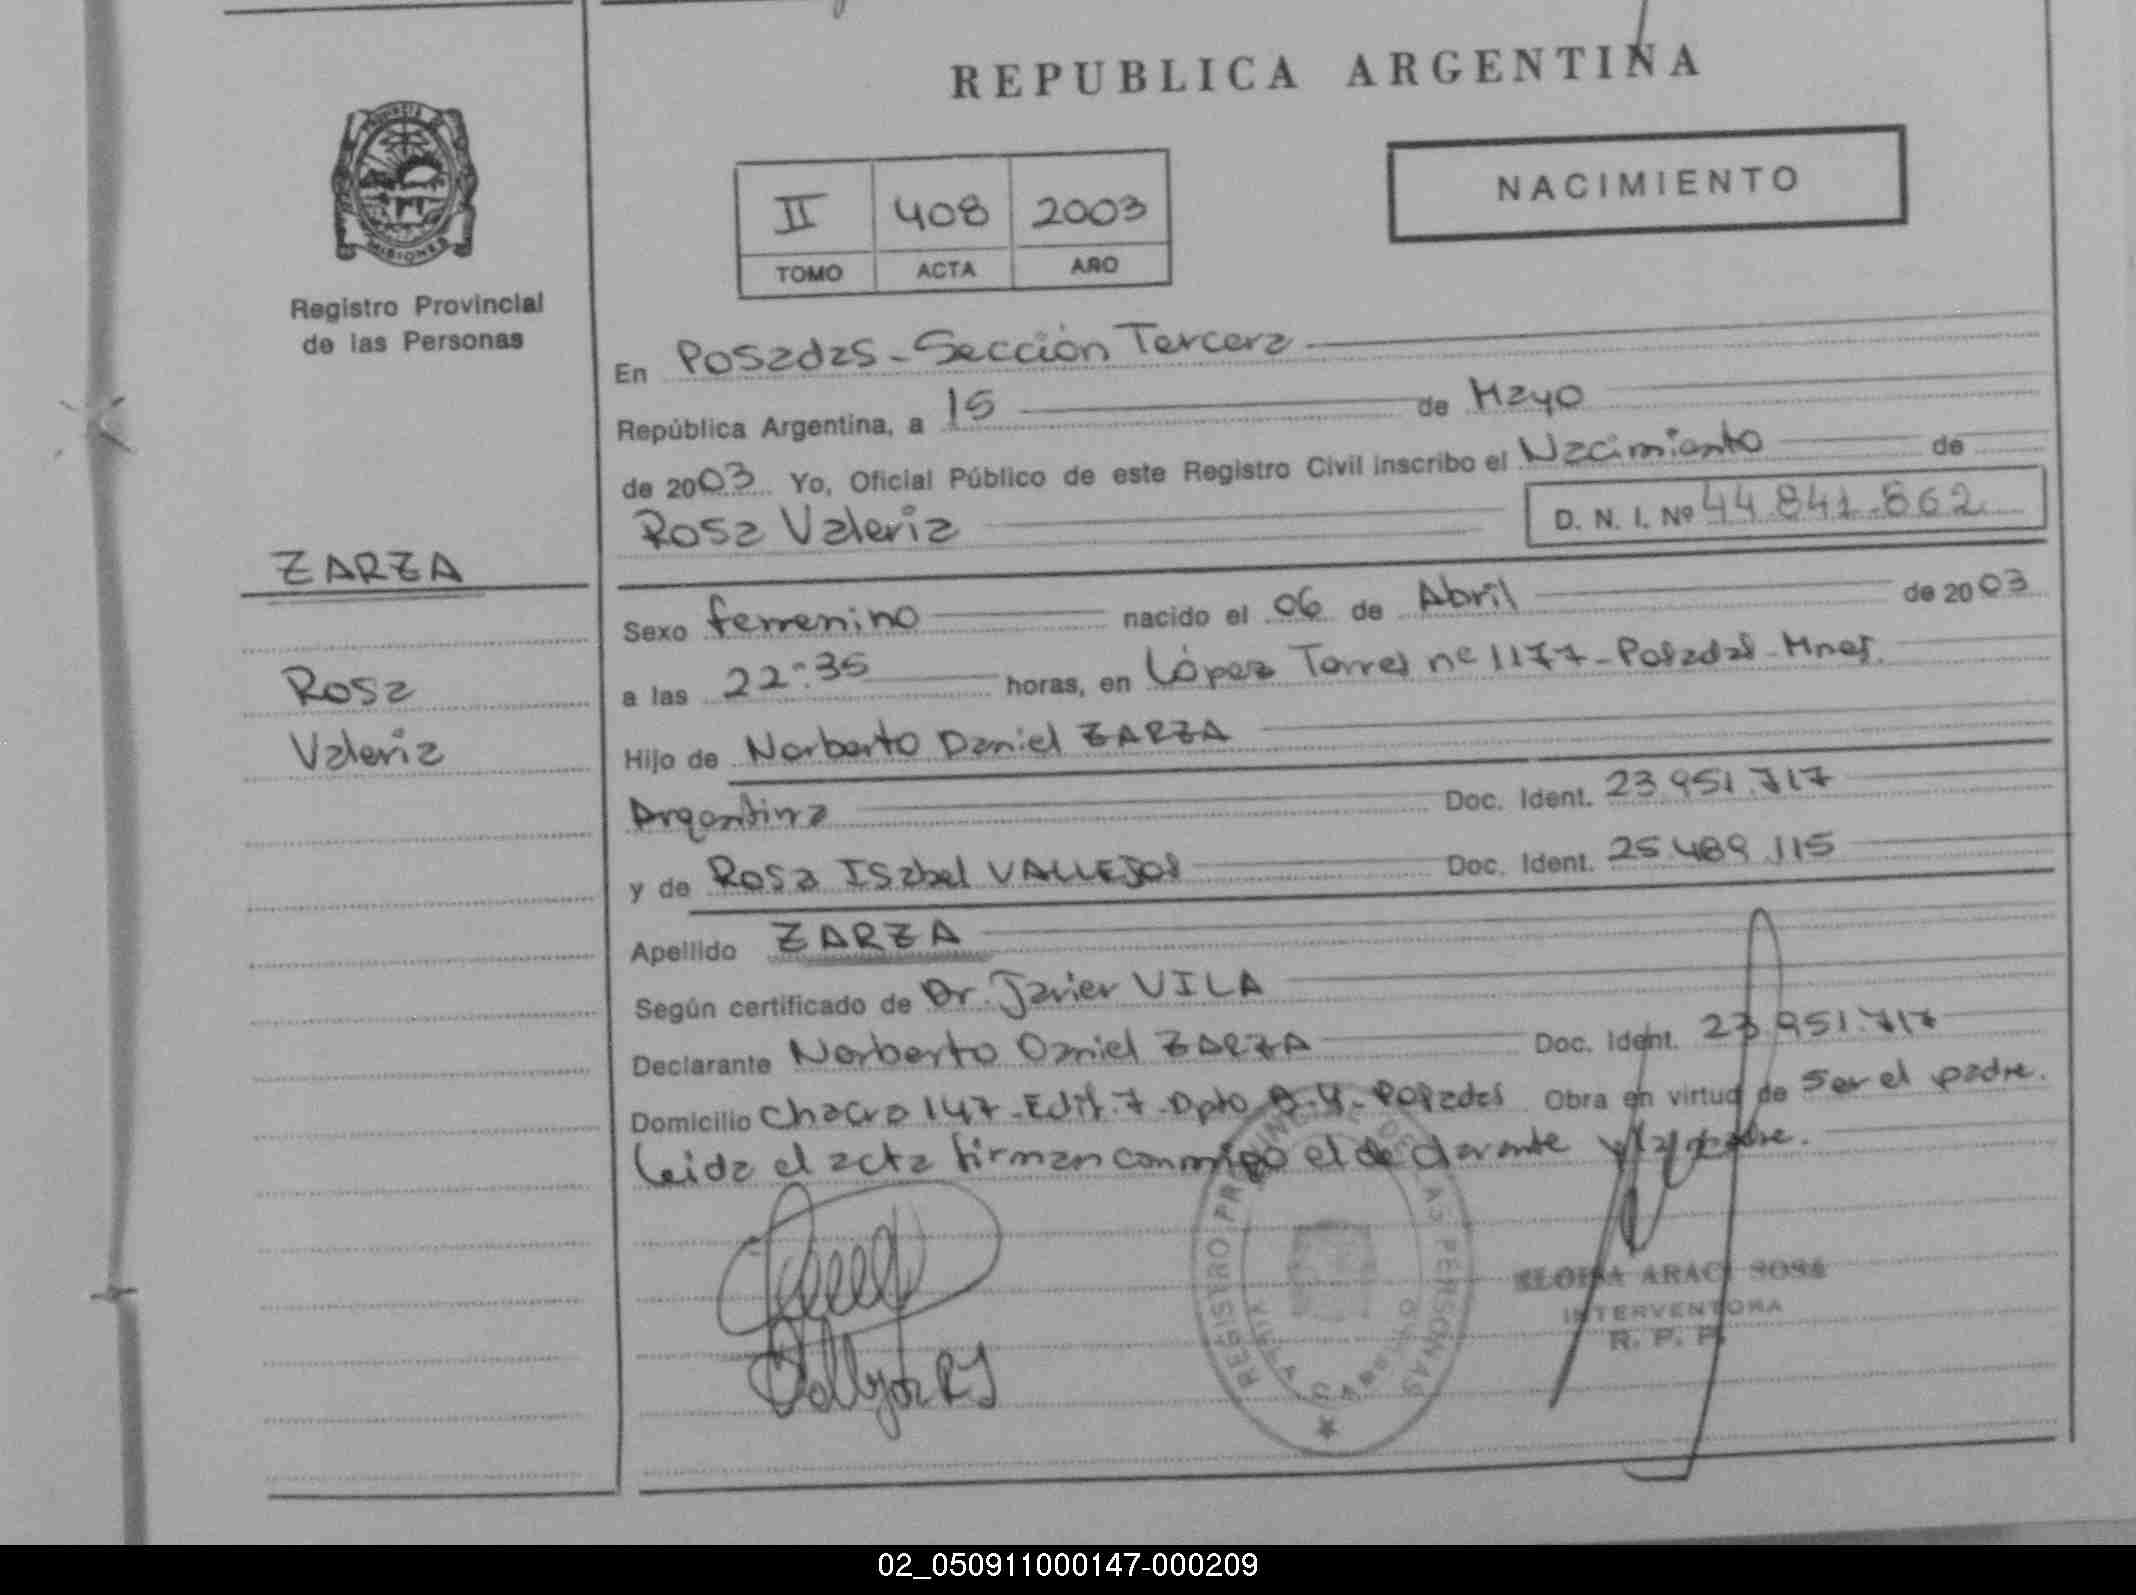 REPUBLICA ARGENTINA
PROVINCIA DE MISIONES
Registro Provincial
de las Personas
II 408 2003
TOMO ACTA AÑO
NACIMIENTO
En Posadas - Sección Tercera
República Argentina, a 15 de Mayo
de 2003 Yo, Oficial Público de este Registro Civil inscribo el Nacimiento de
Rosa Valeria D. N. I. Nº 44.841.862
ZARZA
Rosa
Valeria
Sexo femenino nacido el 06 de Abril de 2003
a las 22:35 horas, en López Torres nº 1177 - Posadas - Mnes.
Hijo de Norberto Daniel ZARZA
Argentina Doc. Ident. 23.951.717
y de Rosa Isabel VALLEJOS Doc. Ident. 25.489.115
Apellido ZARZA
Según certificado de Dr. Javier VILA
Declarante Norberto Daniel ZARZA Doc. Ident. 23.951.717
Domicilio Chacra 147 - Edif. 7 - Dpto Posadas Obra en virtud de ser el padre.
Leida el acta firman conmigo el declarante y la madre.
REGISTRO PROVINCIAL DE LAS PERSONAS
ARACI SOSA
INTERVENTORA
R. P. P.
02_050911000147-000209